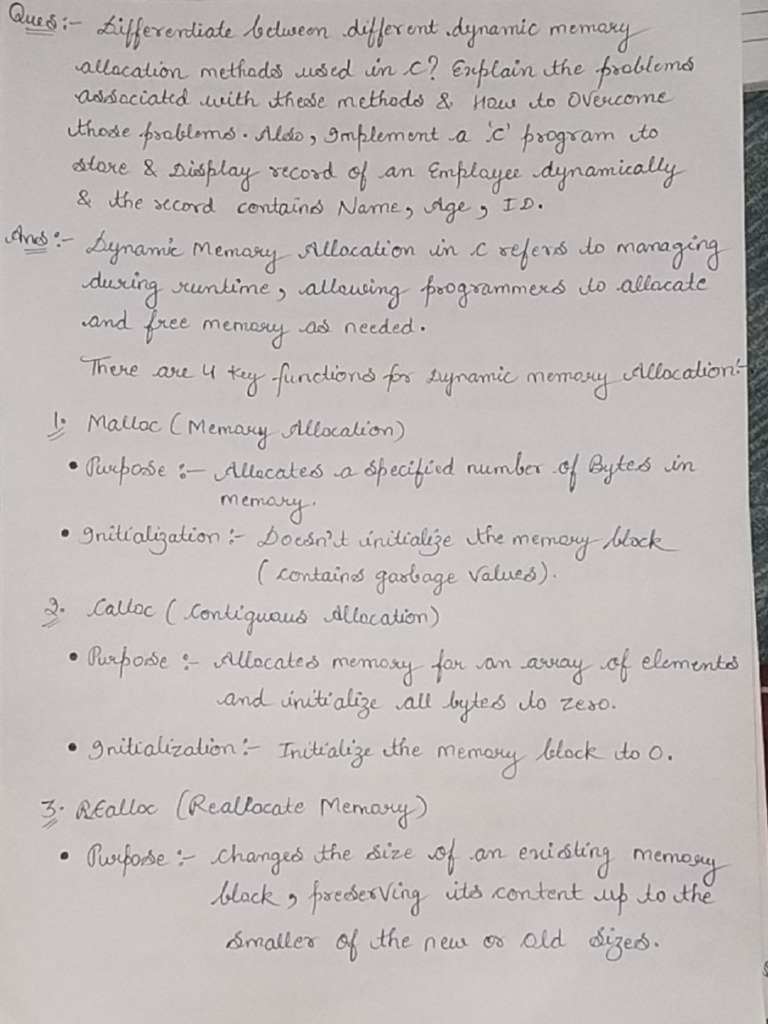 Ques:- Differentiate between different dynamic memory
allocation methods used in C? Explain the problems
associated with these methods & How to Overcome
those problems. Also, Implement a 'C' program to
store & Display record of an Employee dynamically
& the record contains Name, Age, ID.
Ans:- Dynamic Memory Allocation in C refers to managing
during runtime, allowing programmers to allocate
and free memory as needed.
There are 4 key functions for Dynamic memory Allocation:-
1. Malloc (Memory Allocation)
• Purpose :- Allocates a specified number of Bytes in
memory.
• Initialization :- Doesn't initialize the memory block
(contains garbage values).
2. Calloc (Contiguous Allocation)
• Purpose :- Allocates memory for an array of elements
and initialize all bytes to zero.
• Initialization :- Initialize the memory block to 0.
3. REalloc (Reallocate Memory)
• Purpose :- changes the size of an existing memory
block, preserving its content up to the
smaller of the new or old sizes.